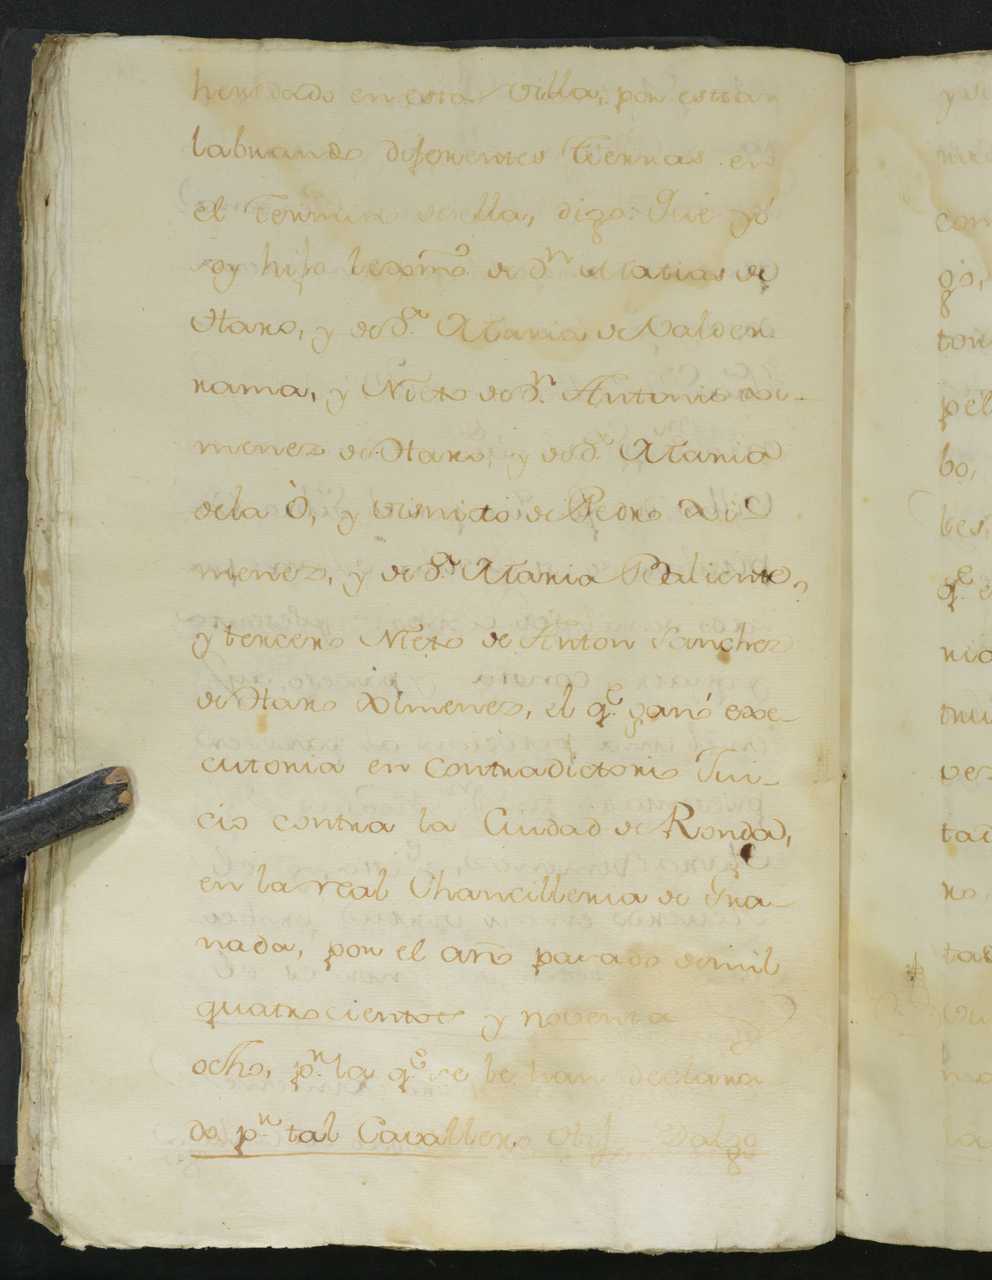 heredado en esta Villa, por estar
labrando diferentes tierras en
el Termino de ella, digo: Que yó
soy hijo lexmo. de Dn. Matias de
Haro, y de Da. Maria de Valder
rama, y Nieto de Dn. Antonio Xi-
menez de Haro, y de Da. Maria
de la Ò, y visnieto de Pedro Xi-
menez, y de Da. Maria Baliente,
y tercero Nieto de Anton Sanchez
de Haro Ximenez, el qe. ganó exe-
cutoria en contradictorio Jui-
cio contra la Ciudad de Ronda,
en la real Chancilleria de Gra-
nada, por el año pasado de mil
quatrocientos y noventa
ocho, pr. la qe. se le han declara
do pr. tal Cavallero Hijo Dalgo